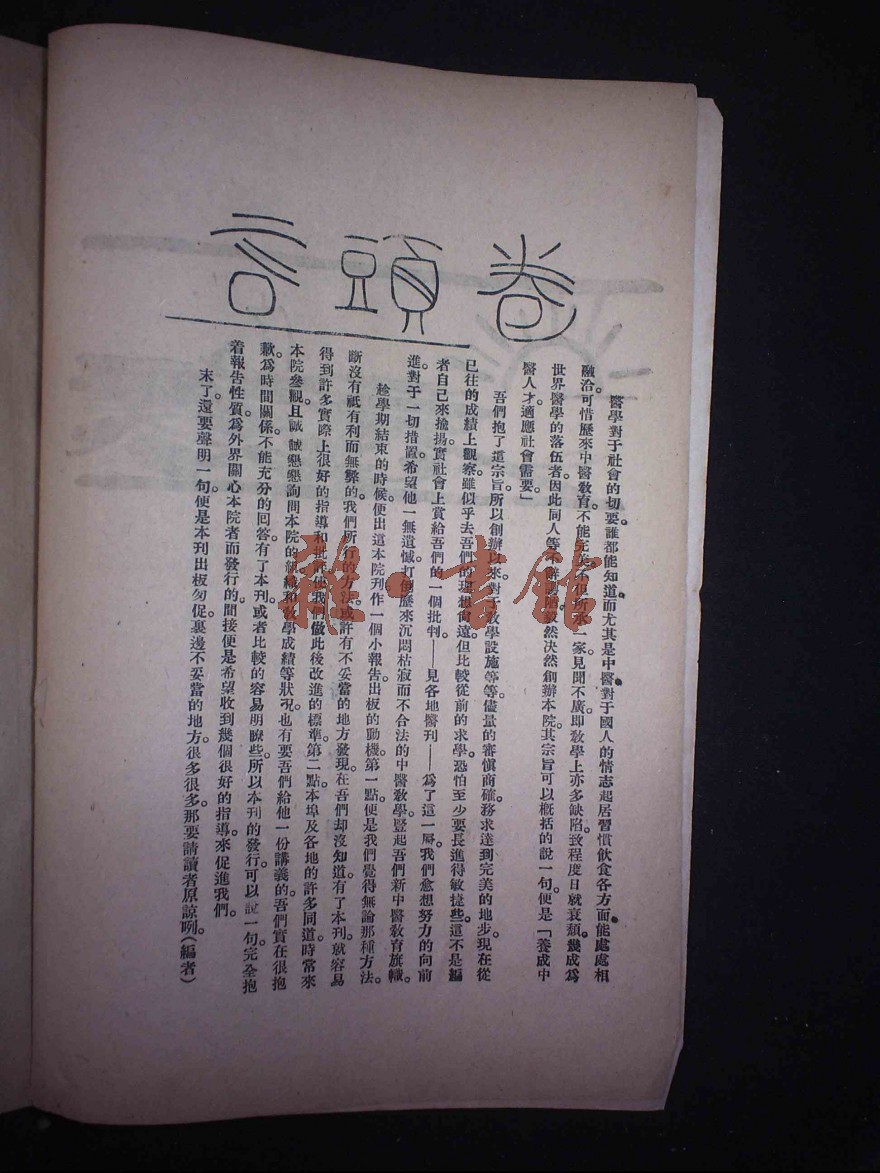 卷頭言
醫學對于社會的切要。誰都能知道。而尤其是中醫對于國人的情志起居習慣飲食各方面。能處處相
融洽。可惜歷來中醫教育。不能完美。不但所承一家。見聞不廣。即教學上亦多缺陷。致程度日就衰頹。幾成爲
世界醫學的落伍者。因此同人等不辭譾陋。毅然決然創辦本院。其宗旨可以概括的說一句。便是「養成中
醫人才適應社會需要」
吾們抱了這宗旨。所以創辦以來。對于教學設施等等。儘量的審愼商確。務求達到完美的地步。現在從
已往的成績上觀察。雖似乎去吾們的理想尙遠。但比較從前的求學。恐怕至少要長進得敏捷些。這不是編
者自己來揄揚。實社會上賞給吾們的一個批判——見各地醫刊——爲了這一層。我們愈想努力的向前
進。對于一切措置。希望他一無遺憾。打倒歷來沉悶枯寂而不合法的中醫教學。豎起吾們新中醫教育旗幟。
趁學期結束的時候。便出這本院刊。作一個小報告。出板的動機。第一點。便是我們覺得無論那種方法。
斷沒有祇有利而無弊的。我們所行的方法。或許有不妥當的地方發現。在吾們却沒知道。有了本刊。就容易
得到許多實際上很好的指導和批評。使我們做此後改進的標準。第二點。本埠及各地的許多同道。時常來
本院參觀。且誠誠懇懇詢問本院的組織和教學成績等狀況。也有要吾們給他一份講義的。吾們實在很抱
歉。爲時間關係。不能充分的回答。有了本刊。或者比較的容易明瞭些。所以本刊的發行。可以說一句。完全抱
着報告性質。爲外界關心本院者而發行的。間接便是希望收到幾個很好的指導。來促進我們。
末了。還要聲明一句。便是本刊出板匆促。裏邊不妥當的地方。很多很多。那要請讀者原諒咧。(編者)
雜·書館